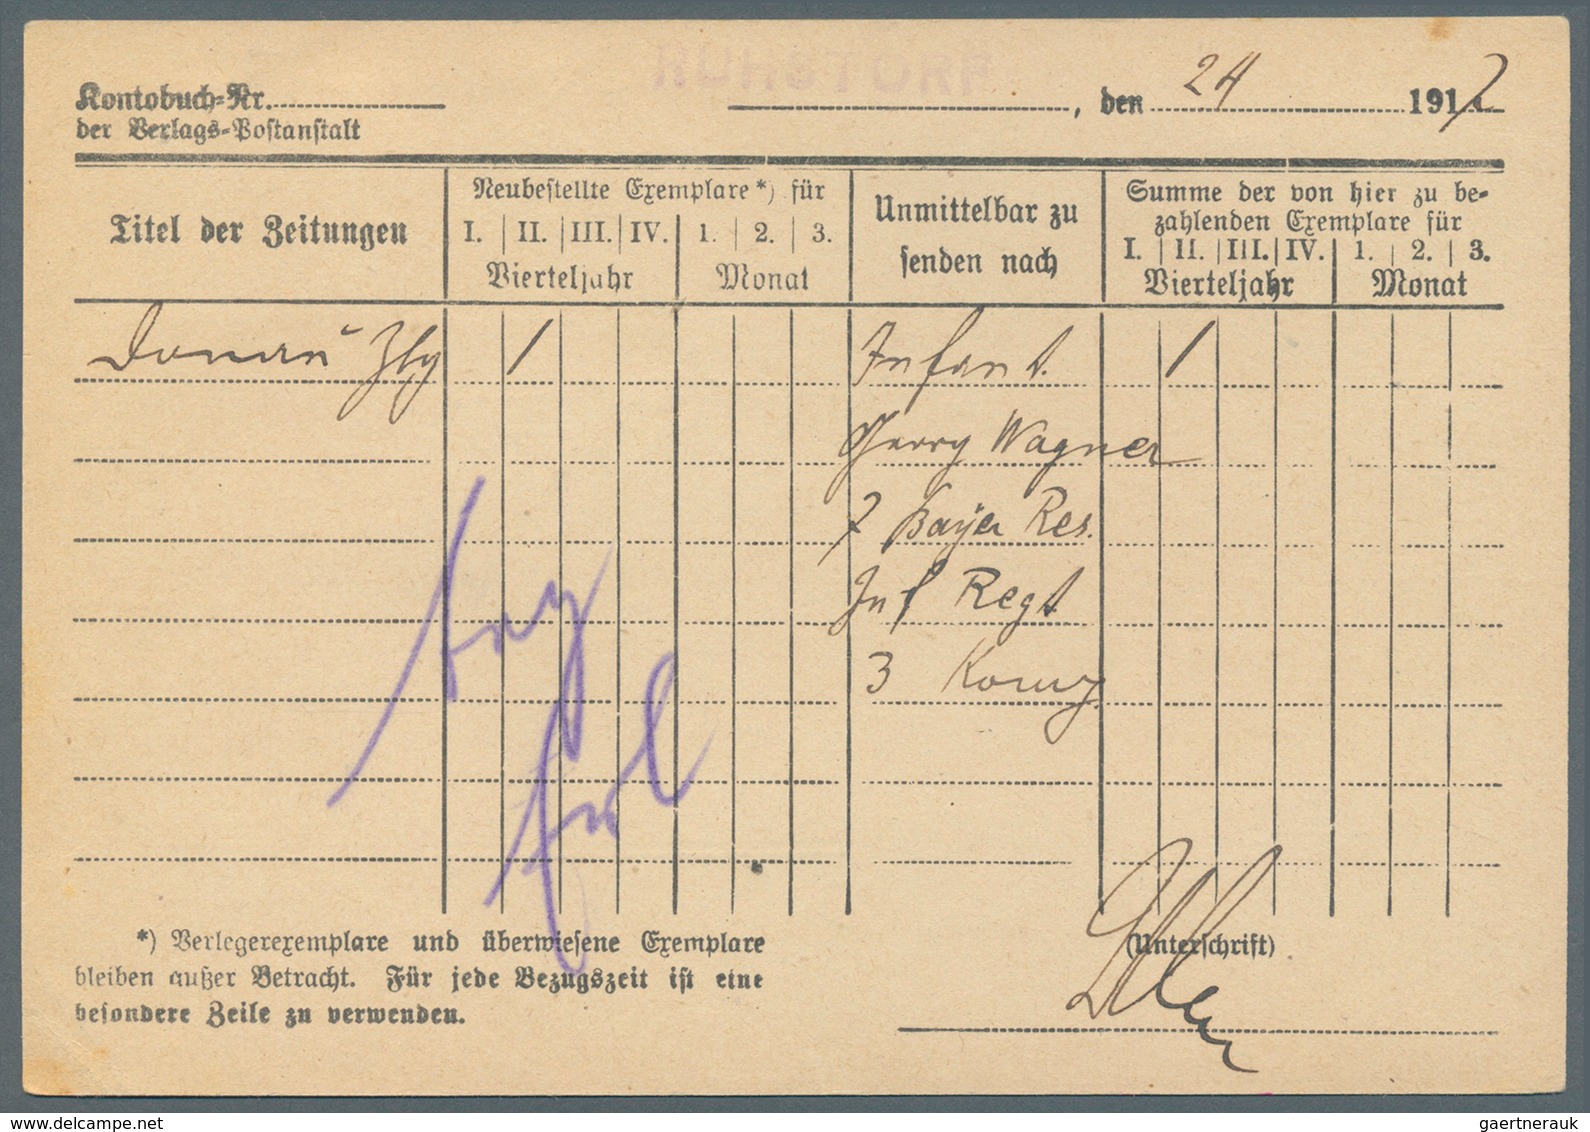 Kontobuch-Nr. , den 24 1917
der Verlags-Postanstalt
Titel der Zeitungen
Neubestellte Exemplare *) für
I. II. III. IV. 1. 2. 3.
Vierteljahr Monat
Unmittelbar zu
senden nach
Summe der von hier zu be-
zahlenden Exemplare für
I. II. III. IV. 1. 2. 3.
Vierteljahr Monat
Donau Ztg 1 Infant. 1
Wagner
7 Bayer Res.
Inf Regt
3 Komp.
*) Verlegerexemplare und überwiesene Exemplare
bleiben außer Betracht. Für jede Bezugszeit ist eine
besondere Zeile zu verwenden.
(Unterschrift)
gaertnerauk